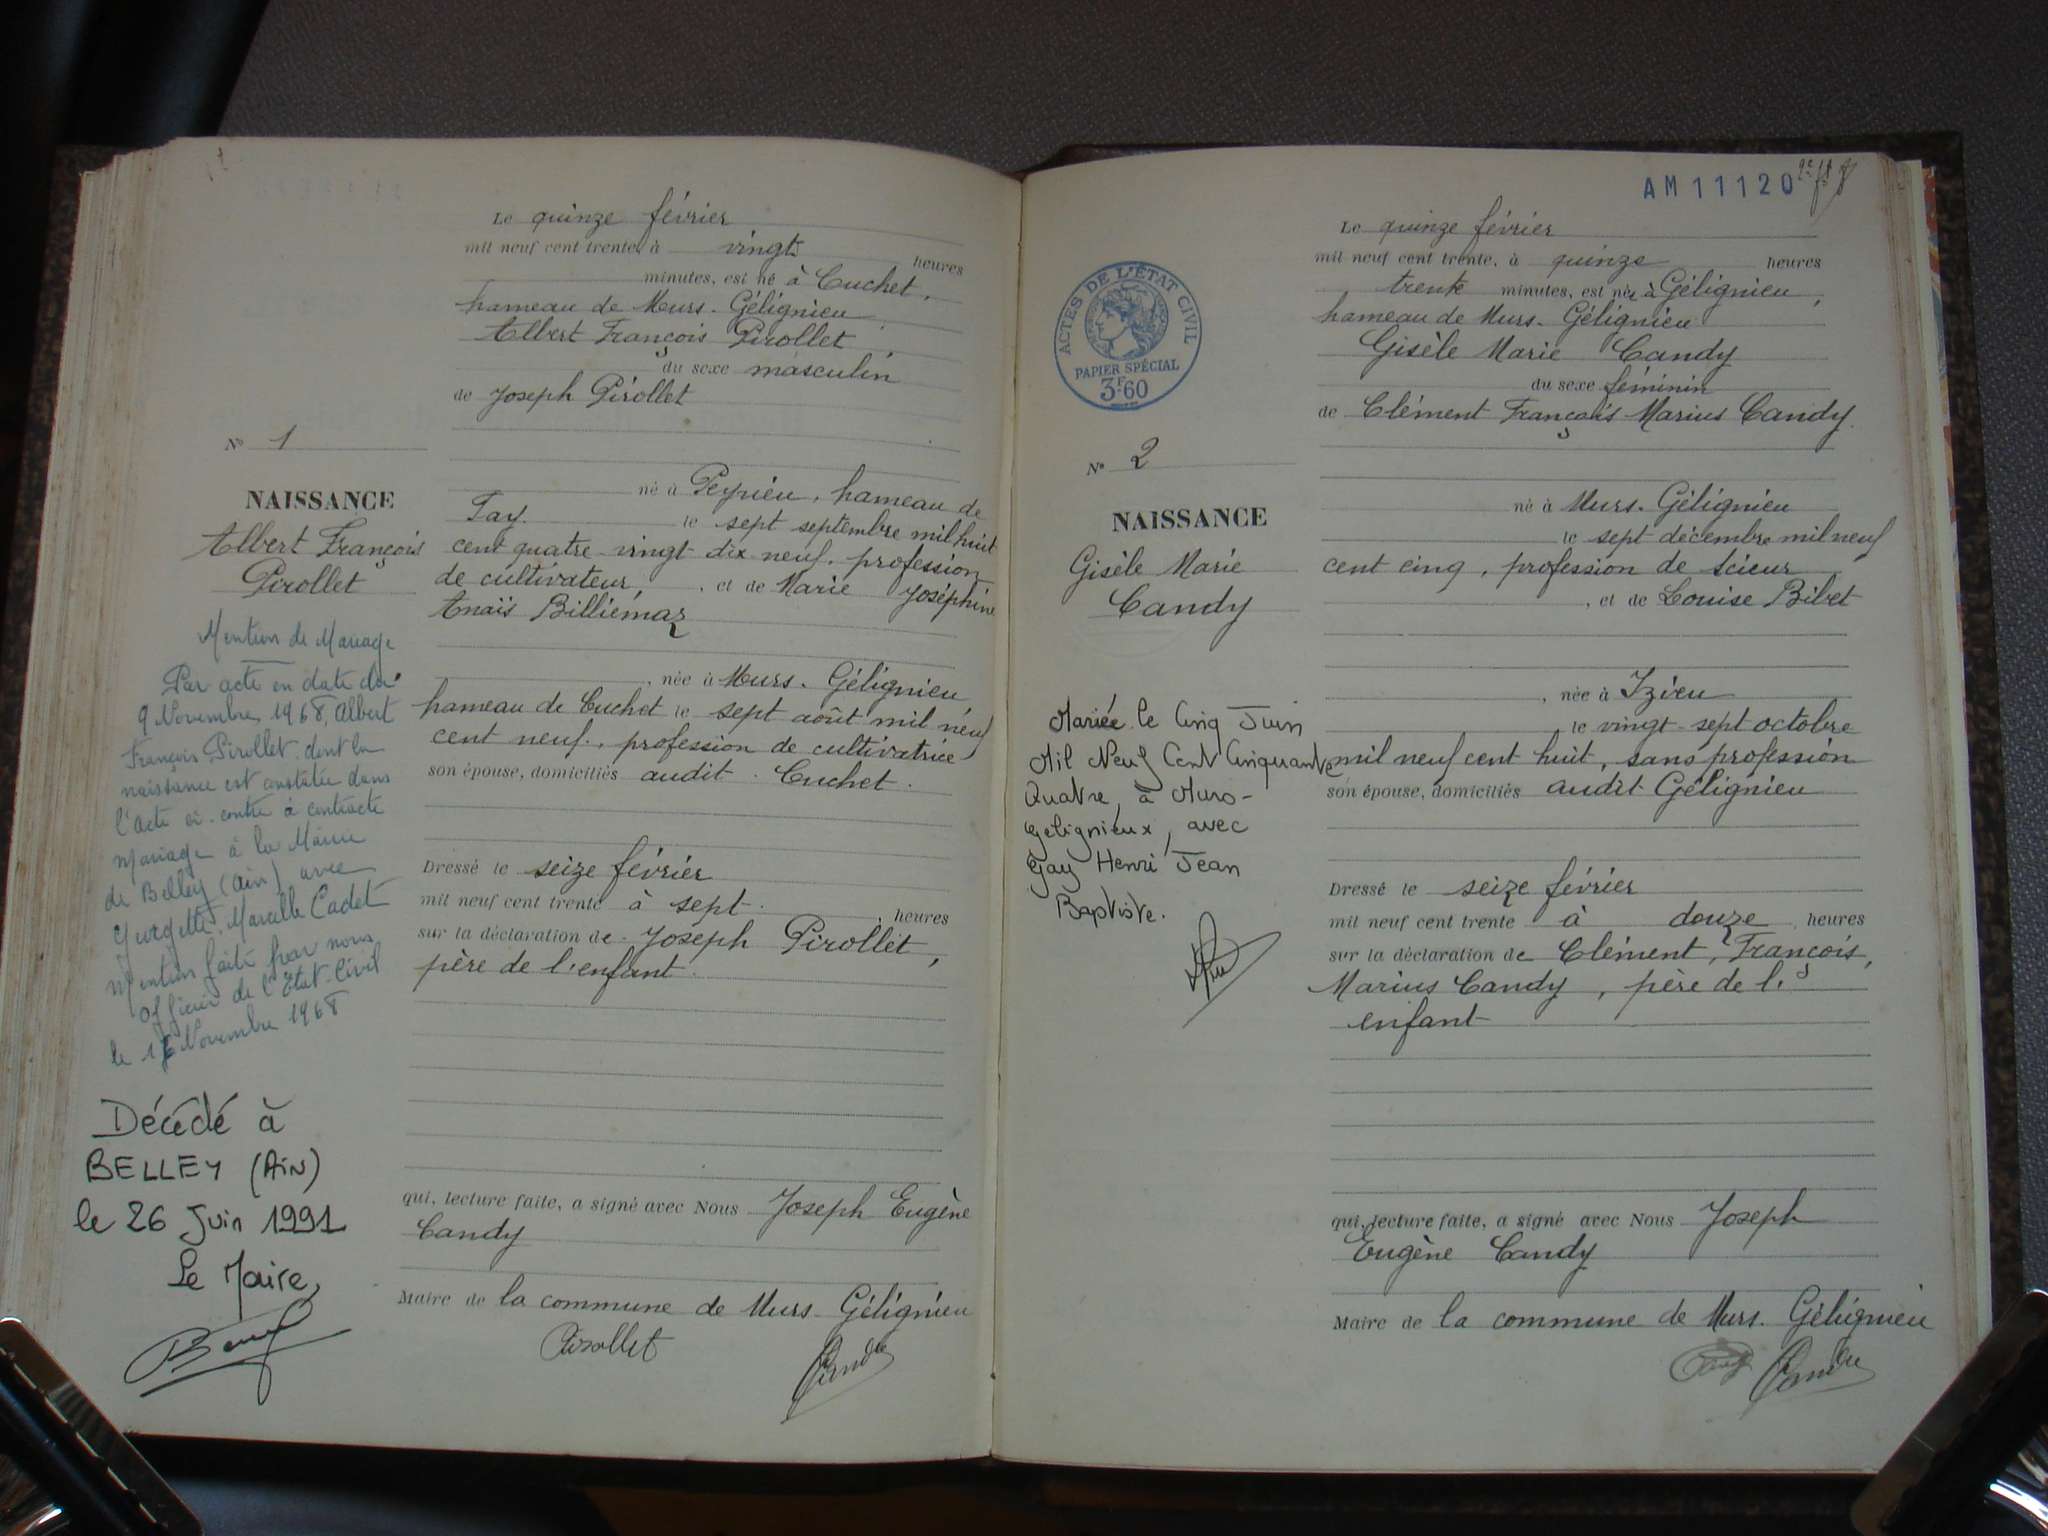 Le quinze février
mil neuf cent trente, à vingt heures
minutes, est né à Cuchet,
hameau de Murs. Gélignieu
Albert François Pirollet
du sexe masculin
de Joseph Pirollet
N° 1
NAISSANCE
Albert François
Pirollet
né à Peyrieu, hameau de
Fay. le sept septembre mil huit
cent quatre-vingt-dix-neuf, profession
de cultivateur, et de Marie Joséphine
Anaïs Billiémaz
, née à Murs. Gélignieu
hameau de Cuchet le sept août mil neuf
cent neuf, profession de cultivatrice
son épouse, domiciliés audit. Cuchet.
Dressé le seize février
mil neuf cent trente à sept. heures
sur la déclaration de Joseph Pirollet,
père de l'enfant.
qui, lecture faite, a signé avec Nous Joseph Eugène
Candy
Maire de la commune de Murs. Gélignieu
Pirollet
Mention de Mariage
Par acte en date du
9 Novembre 1968, Albert
François Pirollet dont la
naissance est constatée dans
l'acte ci-contre à contracté
mariage à la Mairie
de Belley (Ain) avec
Georgette Marcelle Cadet
Mention faite par nous
Officier de l'Etat-Civil
le Novembre 1968
Décédé à
BELLEY (AiN)
le 26 Juin 1991
Le Maire,
AM11120
ACTES DE L'ÉTAT CIVIL
PAPIER SPÉCIAL
3F60
Le quinze février
mil neuf cent trente, à quinze heures
trente minutes, est née à Gélignieu,
hameau de Murs. Gélignieu
Gisèle Marie Candy
du sexe féminin
de Clément François Marius Candy.
N° 2
NAISSANCE
Gisèle Marie
Candy
né à Murs. Gélignieu
le sept décembre mil neuf
cent cinq, profession de scieur
, et de Louise Bibet
, née à Izieu
le vingt-sept octobre
mil neuf cent huit, sans profession
son épouse, domiciliés audit Gélignieu
Dressé le seize février
mil neuf cent trente à douze heures
sur la déclaration de Clément, François,
Marius Candy, père de l'
enfant
qui, lecture faite, a signé avec Nous Joseph
Eugène Candy
Maire de la commune de Murs. Gélignieu
Mariée le Cinq Juin
Mil Neuf Cent Cinquante
Quatre, à Murs-
Gelignieux, avec
Gay Henri Jean
Baptiste.